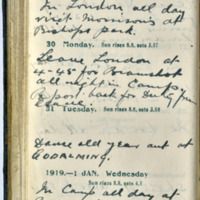 In London all day
visit Morrisons at
Bishops Park.
30 Monday. Sun rises 8.8, sets 3.57
Leave London at
4-45 for Bramshot
all night in Camp.
Report back for Duty from
Leave.
31 Tuesday. Sun rises 8.8, sets 3.58
Dance old year out at
GODALMING.
1919.—1 JAN. Wednesday
Sun rises 8.8, sets 4.1
In Camp all day at